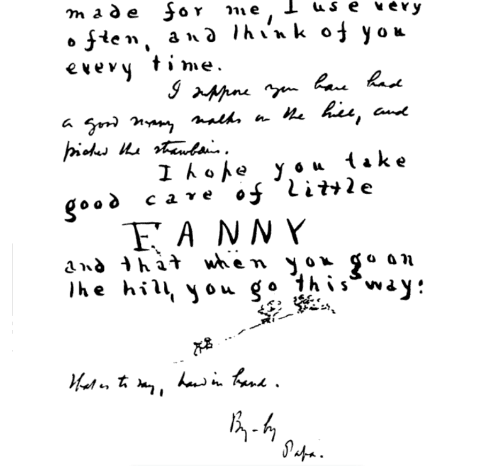 made for me, I use very
often, and think of you
every time.
I suppose you have had
a good many walks on the hill, and
picked the strawberries.
I hope you take
good care of little
FANNY
and that when you go on
the hill, you go this way:
that is to say, hand in hand.
By-by
Papa.